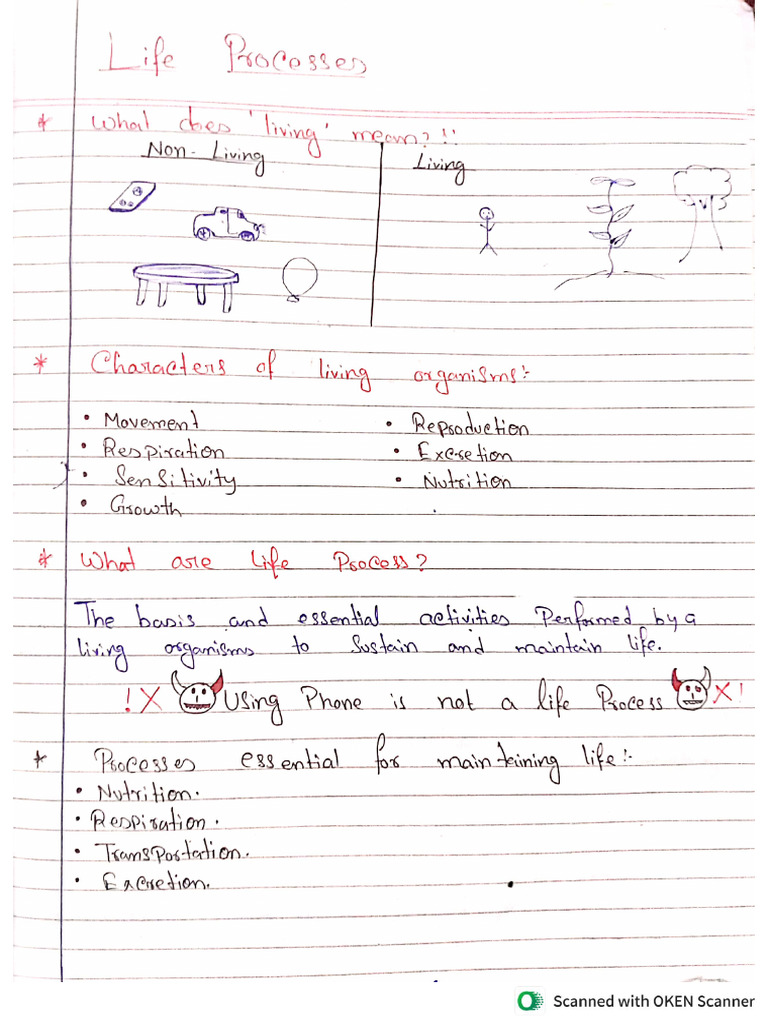 Life Processes
* What does 'living' mean?!!
Non-Living
Living
* Characters of living organisms:-
• Movement
• Respiration
• Sensitivity
• Growth
• Reproduction
• Excretion
• Nutrition
* What are life Process?
The basis and essential activities Performed by a
living organisms to sustain and maintain life.
! X Using Phone is not a life Process X !
* Processes essential for maintaining life:-
• Nutrition.
• Respiration.
• Transportation.
• Excretion.
Scanned with OKEN Scanner